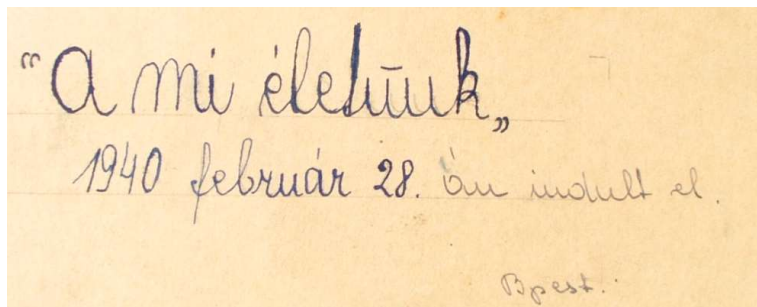 "A mi életünk„
1940 február 28. án indult el.
Bpest.